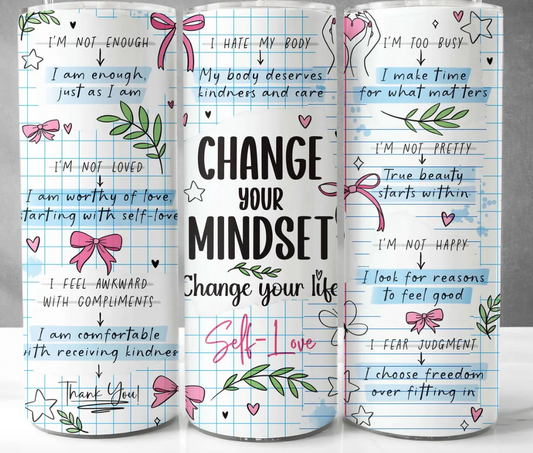 I'M NOT ENOUGH
I am enough,
just as I am
I'M NOT LOVED
I am worthy of love,
starting with self-love
I FEEL AWKWARD
WITH COMPLIMENTS
I am comfortable
with receiving kindness
Thank You!
I HATE MY BODY
My body deserves
kindness and care
CHANGE
YOUR
MINDSET
Change your life
Self-Love
I'M TOO BUSY
I make time
for what matters
I'M NOT PRETTY
True beauty
starts within
I'M NOT HAPPY
I look for reasons
to feel good
I FEAR JUDGMENT
I choose freedom
over fitting in